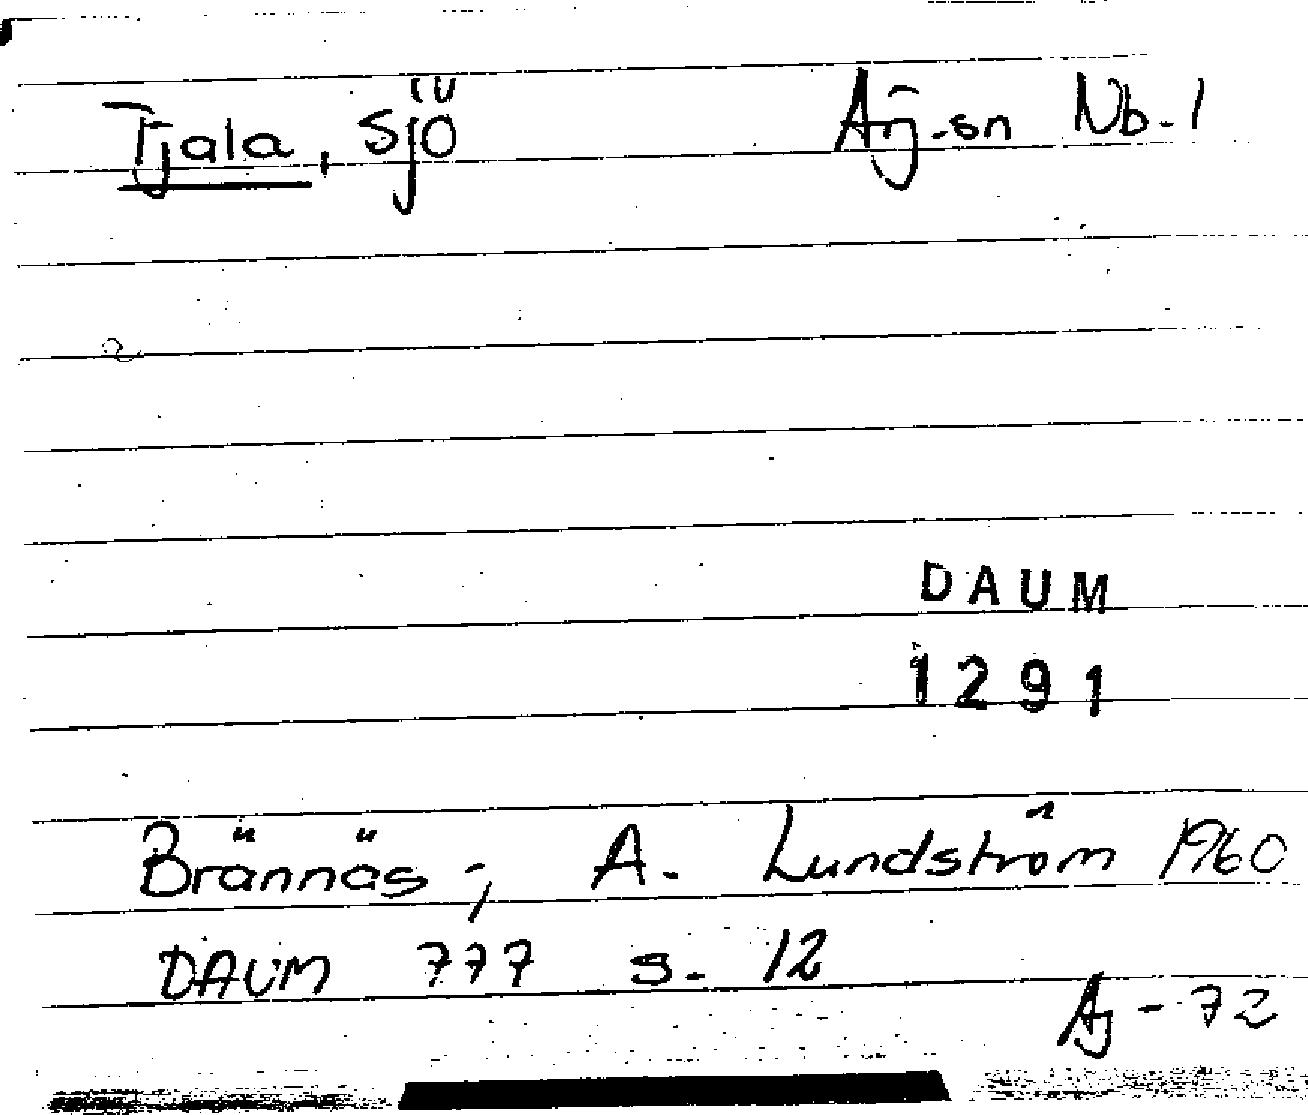 Tjala, sjö Arj-sn Nb-l
DAUM
1291
Brännäs; A. Lundström 1960
DAUM 777 s. 12
Aj - 72